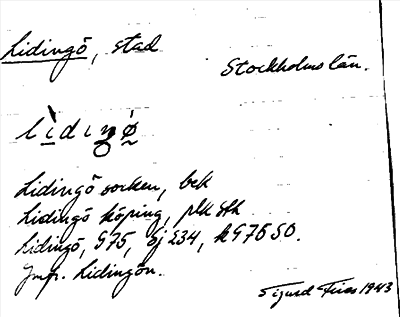 Lidingö, stad
Stockholms län.
lìdıŋø̀
Lidingö socken, bek
Lidingö köping, plk Sth
Lidingö, G75, Sj 234, k G75 SO.
Jmf. Lidingön.
Sigurd Fries 1943